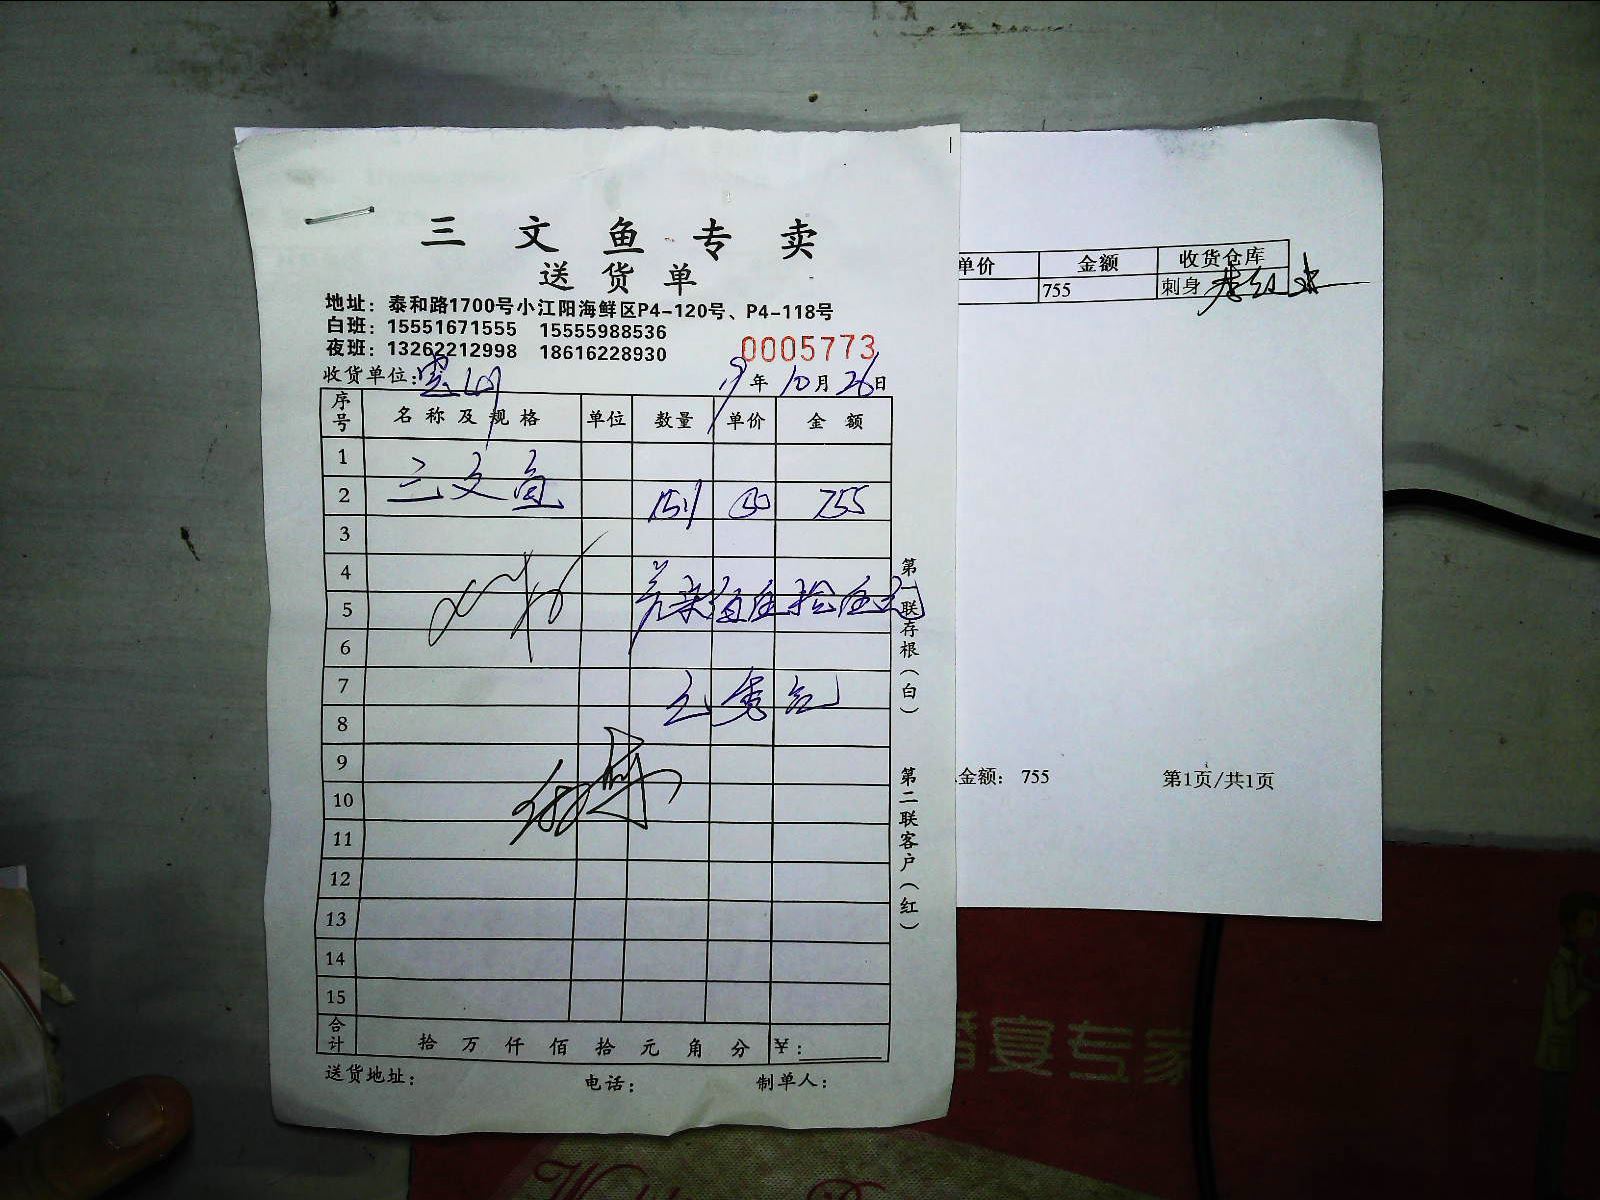 三文鱼专卖
送货单
地址：泰和路1700号小江阳海鲜区P4-120号、P4-118号
白班：15551671555 15555988536
夜班：13262212998 18616228930
0005773
收货单位：
19年10月26日
序号 名称及规格 单位 数量 单价 金额
1
2 三文鱼 151 50 755
3
4
5
6
7
8
9
10
11
12
13
14
15
合计 拾万仟佰拾元角分 ¥：
送货地址： 电话： 制单人：
第一联存根（白）
第二联客户（红）
单价 金额 收货仓库
755 刺身
金额： 755 第1页/共1页
宴专家